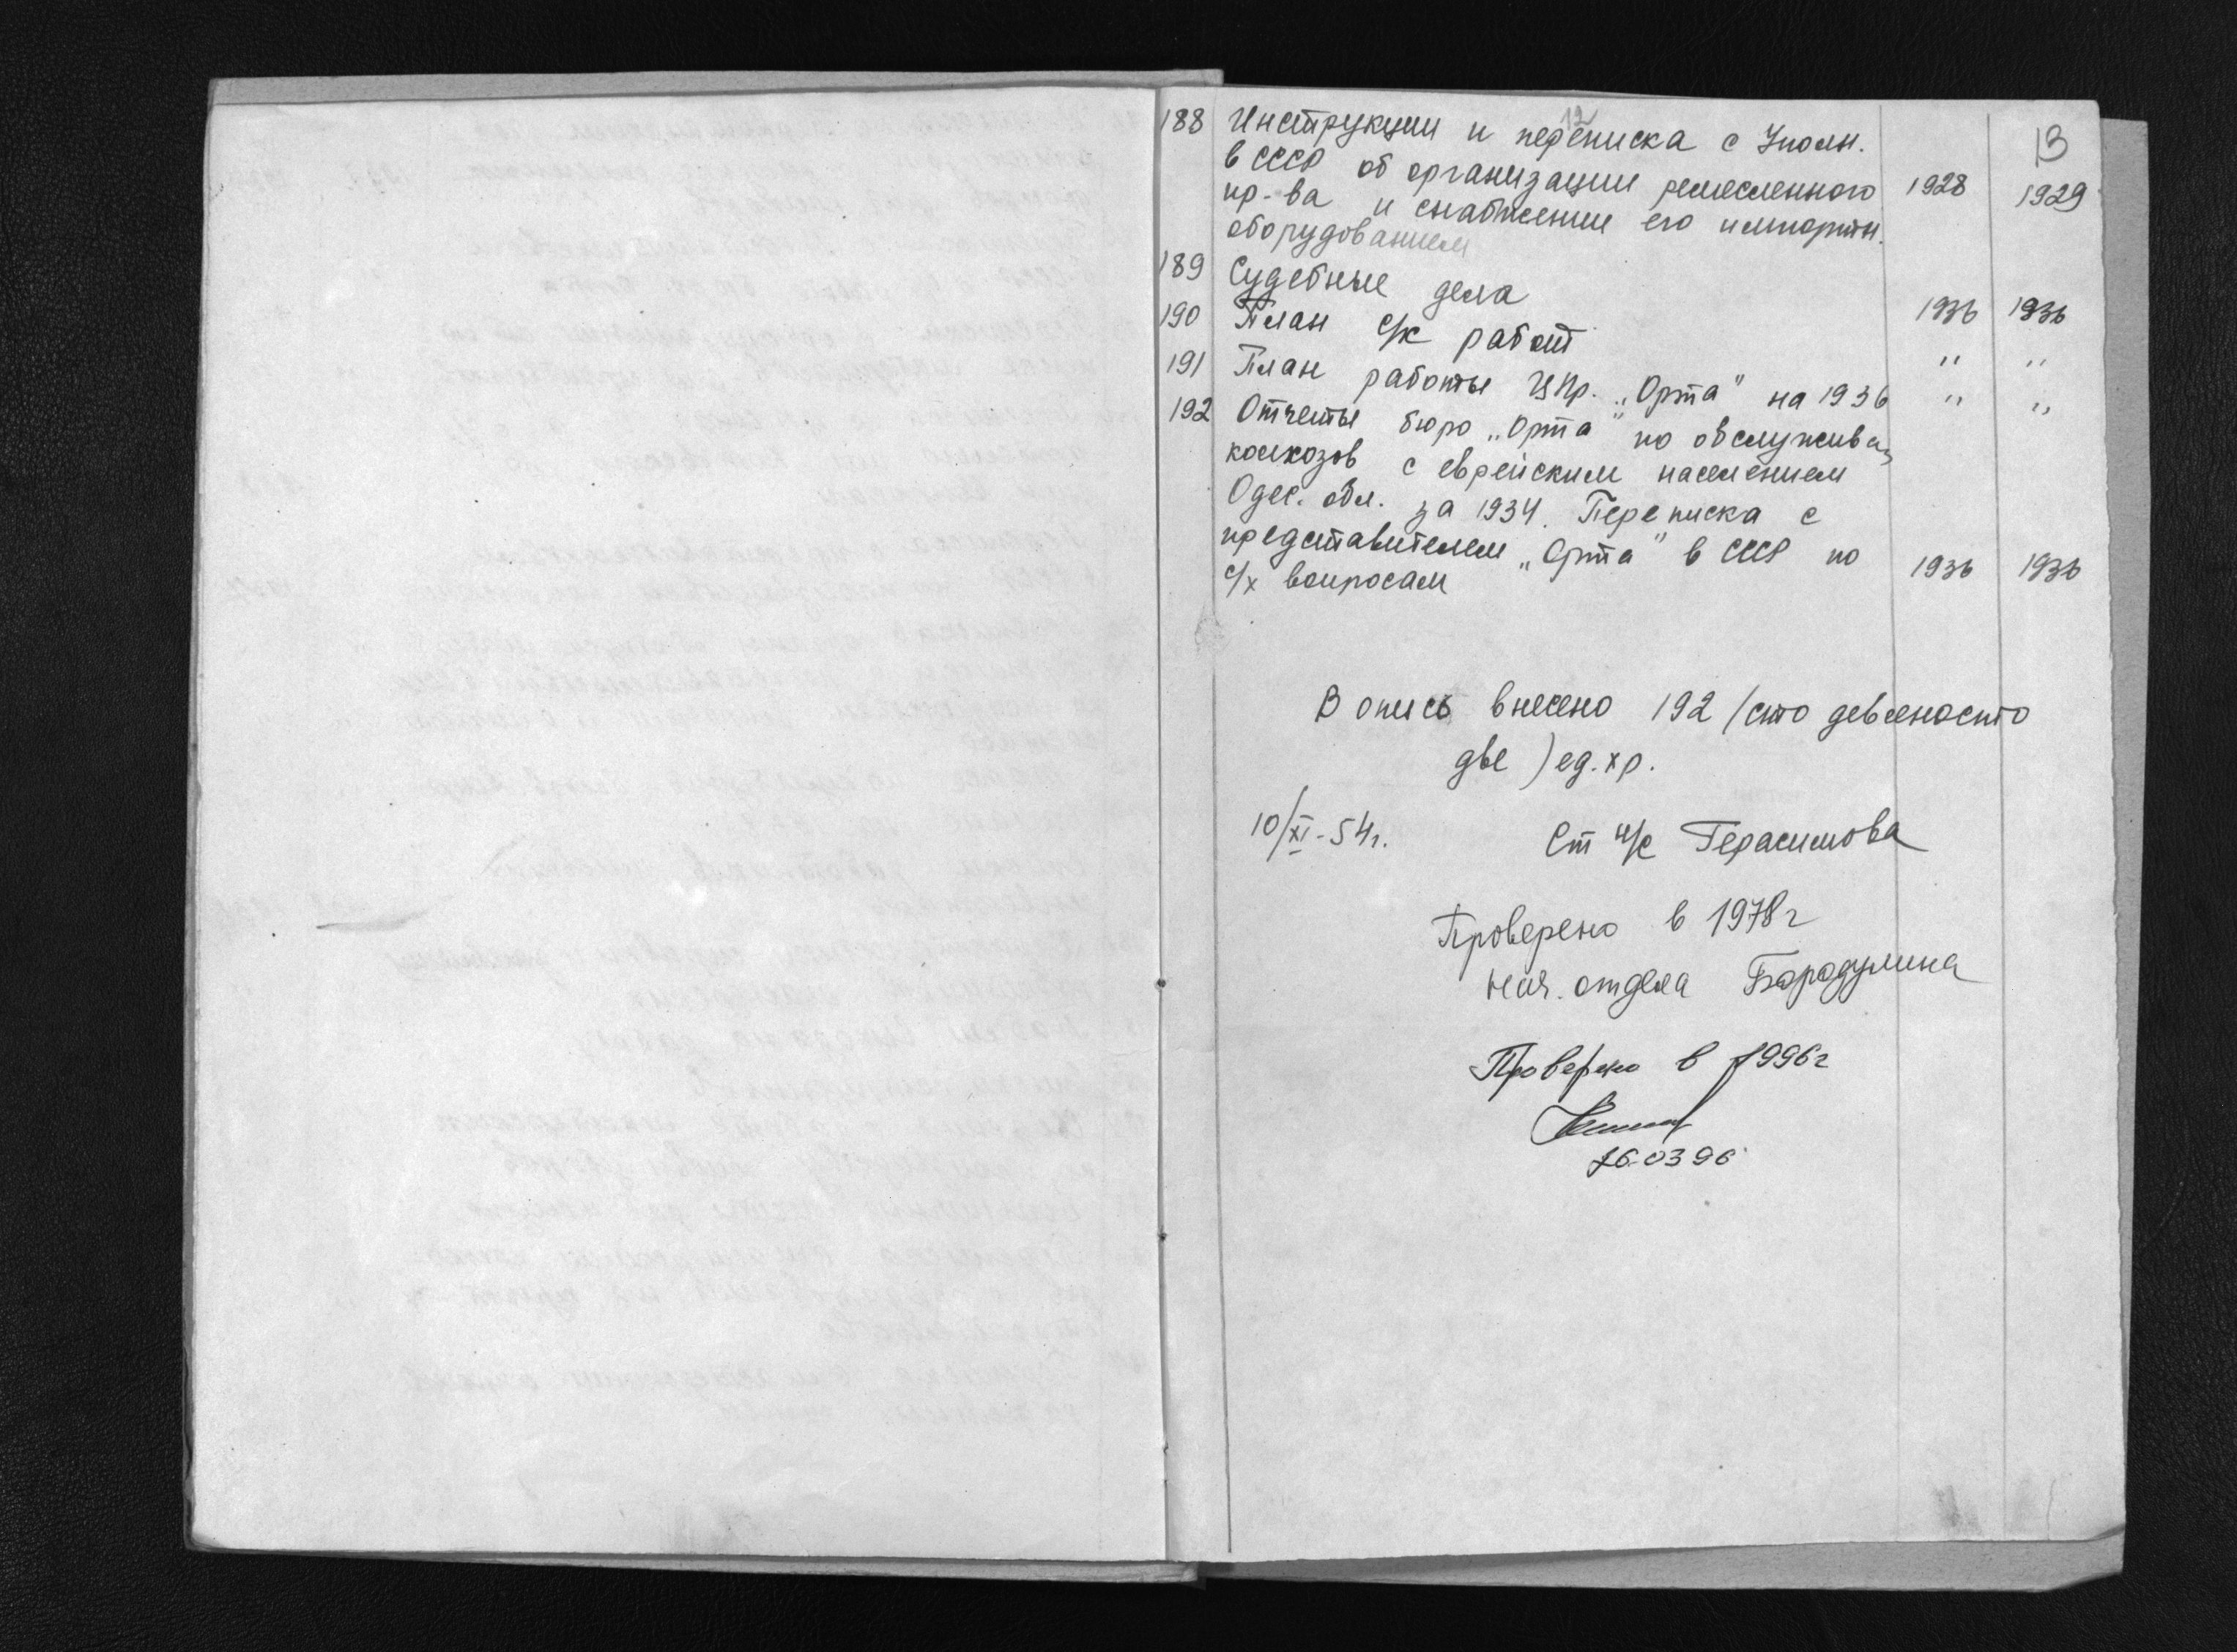 12
13
188 Инструкции и переписка с Уполн.
в СССР об организации ремесленного 1928 1929
пр-ва и снабжение его импортн.
оборудованием
189 Судебные дела 1936 1936
190 План с/х работ " "
191 План работы ЦПр. „Орта" на 1936 " "
192 Отчеты бюро „Орта" по обслуживан
колхозов с еврейским населением
Одес. обл. за 1934. Переписка с
представителем „Орта" в СССР по
с/х вопросам 1936 1936
В опись внесено 192 /сто девяносто
две) ед. хр.
10/XI-54г. Ст н/с Герасимова
Проверено в 1978г
нач. отдела Бородулина
Проверено в 1996г
26.03 96